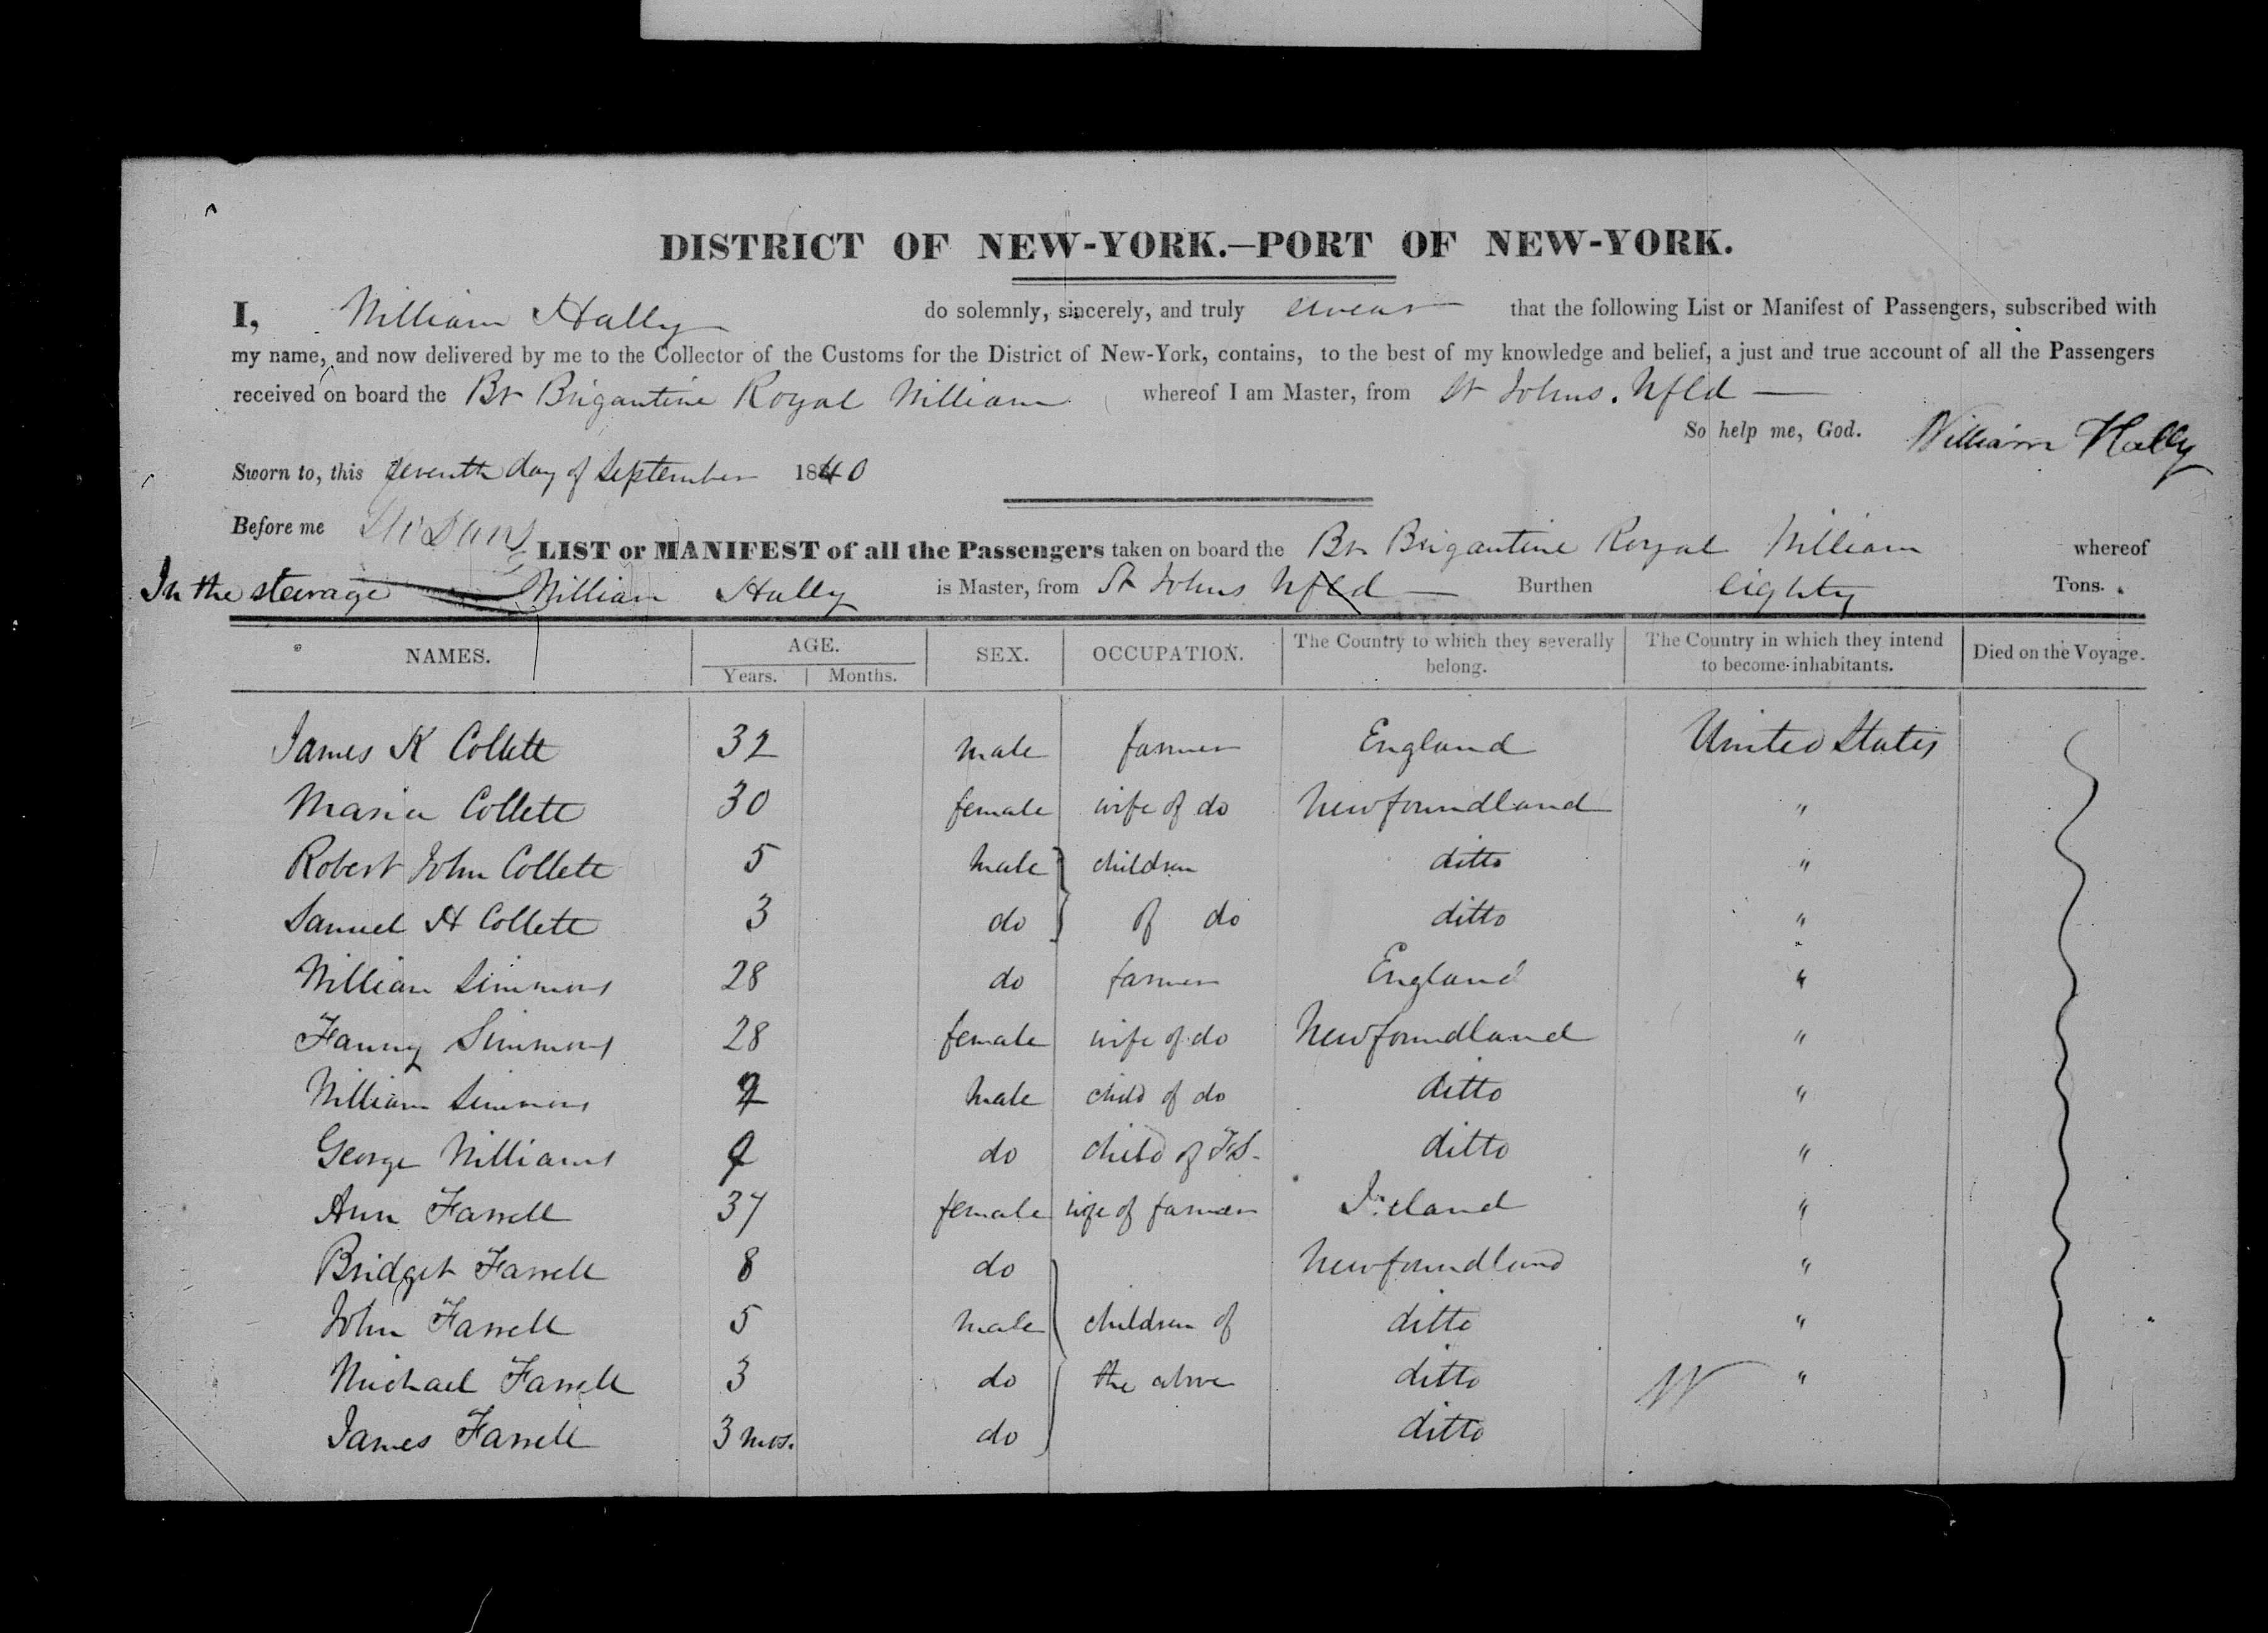 DISTRICT OF NEW-YORK.—PORT OF NEW-YORK.
I, William Hally do solemnly, sincerely, and truly swear that the following List or Manifest of Passengers, subscribed with
my name, and now delivered by me to the Collector of the Customs for the District of New-York, contains, to the best of my knowledge and belief, a just and true account of all the Passengers
received on board the Br Brigantine Royal William whereof I am Master, from St Johns. Nfld —
So help me, God. William Hally
Sworn to, this seventh day of September 1840
Before me
LIST or MANIFEST of all the Passengers taken on board the Br Brigantine Royal William whereof
In the steerage William Hally is Master, from St Johns Nfld — Burthen eighty Tons.
NAMES. AGE. SEX. OCCUPATION. The Country to which they severally belong. The Country in which they intend to become inhabitants. Died on the Voyage.
Years. Months.
James K Collett 32 male farmer England United States
Maria Collett 30 female wife of do Newfoundland "
Robert John Collett 5 male children ditto "
Samuel H Collett 3 do of do ditto "
William Simmons 28 do farmer England "
Fanny Simmons 28 female wife of do Newfoundland "
William Simmons male child of do ditto "
George Williams do child of F.S. ditto "
Ann Farrell 37 female wife of farmer Ireland "
Bridget Farrell 8 do Newfoundland "
John Farrell 5 male children of ditto "
Michael Farrell 3 do the above ditto "
James Farrell 3 mos. do ditto